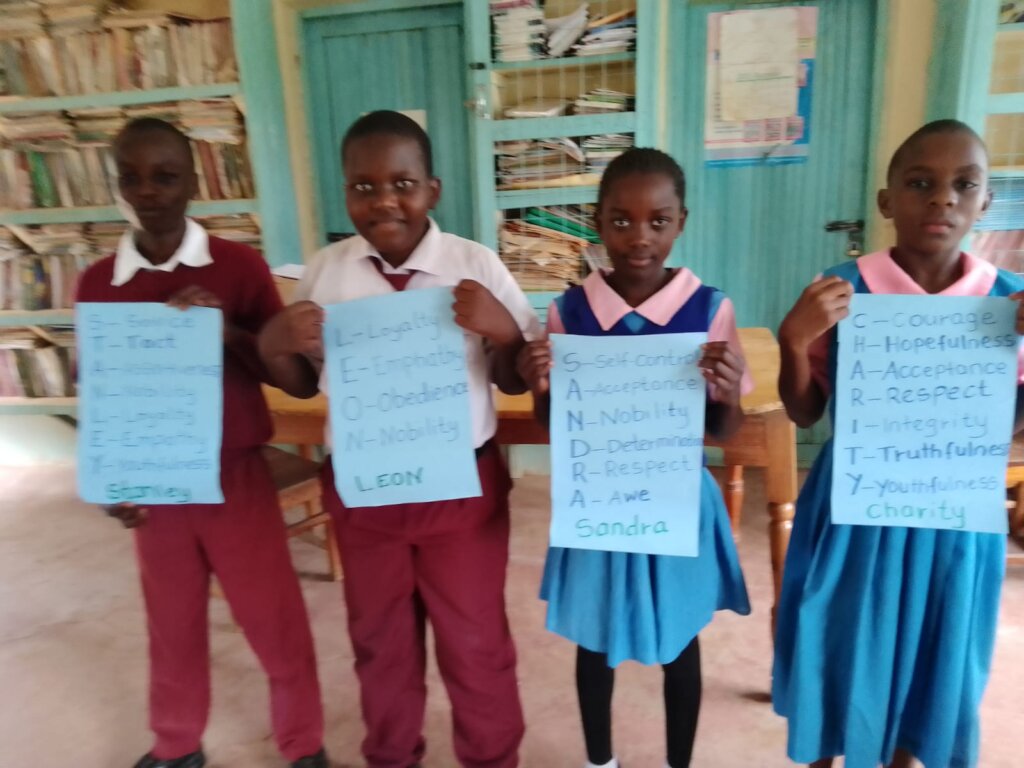 S- Service
T- Tact
A- Assertiveness
N- Nobility
L- Loyalty
E- Empathy
Y- Youthfulness
Stanley
L- Loyalty
E- Empathy
O- Obedience
N- Nobility
LEON
S- Self-Control
A- Acceptance
N- Nobility
D- Determination
R- Respect
A- Awe
Sandra
C- Courage
H- Hopefulness
A- Acceptance
R- Respect
I- Integrity
T- Truthfulness
Y- Youthfulness
Charity